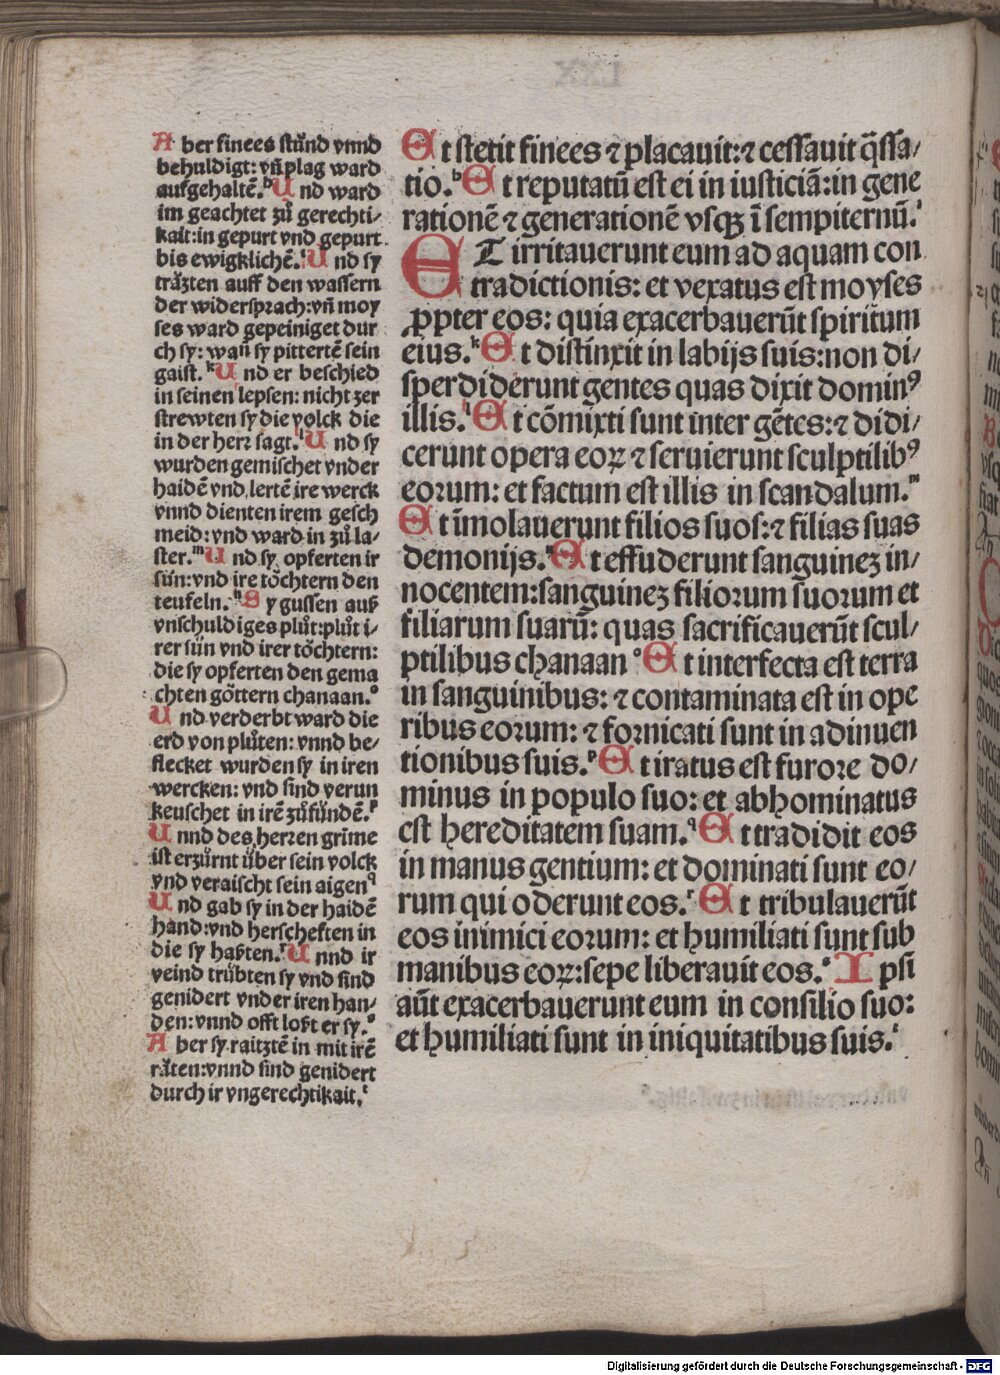 A ber finees stůnd vnnd
behuldigt: vñ plag ward
aufgehaltē.ʰ U nd ward
im geachtet zů gerechti⸗
kait:in gepurt vnd gepurt
bis ewigklichē.ⁱ U nd sy
träzten auff den wassern
der widersprach:vñ moy
ses ward gepeiniget dur
ch sy: wañ sy pittertē sein
gaist.ᵏ U nd er beschied
in seinen lepsen: nicht zer
strewten sy die volck die
in der herr sagt.ˡ U nd sy
wurden gemischet vnder
haidē vnd lertē ire werck
vnnd dienten irem gesch
meid: vnd ward in zů la⸗
ster.ᵐ U nd sy opferten ir
sün:vnd ire töchtern den
teufeln.ⁿ S y gussen auß
vnschuldiges plůt:plůt i⸗
rer sün vnd irer töchtern:
die sy opferten den gema
chten göttern chanaan.°
U nd verderbt ward die
erd von plůten: vnnd be⸗
flecket wurden sy in iren
wercken: vnd sind verun
keuschet in irē zůfündē.ᵖ
U nnd des herren grime
ist erzürnt über sein volck
vnd veraischt sein aigen.q
U nd gab sy in der haidē
hand:vnd herscheften in
die sy haßten.ʳ U nnd ir
veind trübten sy vnd sind
genidert vnder iren han⸗
den: vnnd offt loßt er sy.ˢ
A ber sy raitztē in mit irē
räten:vnnd sind genidert
durch ir vngerechtikait.ᵗ
E t stetit finees ⁊ placauit:⁊ cessauit q̄ssa⸗
tio.ʰ E t reputatū est ei in iusticiā:in gene
rationē ⁊ generationē vsqꝫ ī sempiternū.ⁱ
E T irritauerunt eum ad aquam con
tradictionis: et vexatus est moyses
ꝓpter eos: quia exacerbauerūt spiritum
eius.ᵏ E t distinxit in labijs suis:non di⸗
sperdiderunt gentes quas dixit dominꝰ
illis.ˡ E t cōmixti sunt inter gētes:⁊ didi⸗
cerunt opera eoꝝ ⁊ seruierunt sculptilibꝰ
eorum: et factum est illis in scandalum.ᵐ
E t īmolauerunt filios suos:⁊ filias suas
demonijs.ⁿ E t effuderunt sanguineꝫ in⸗
nocentem:sanguineꝫ filiorum suorum et
filiarum suarū: quas sacrificauerūt scul⸗
ptilibus chanaan ° E t interfecta est terra
in sanguinibus: ⁊ contaminata est in ope
ribus eorum: ⁊ fornicati sunt in adinuen
tionibus suis.ᵖ E t iratus est furore do⸗
minus in populo suo: et abhominatus
est hereditatem suam.q E t tradidit eos
in manus gentium: et dominati sunt eo⸗
rum qui oderunt eos.ʳ E t tribulauerūt
eos inimici eorum: et humiliati sunt sub
manibus eoꝝ:sepe liberauit eos.ˢ I psi
aūt exacerbauerunt eum in consilio suo:
et humiliati sunt in iniquitatibus suis.ᵗ
Digitalisierung gefördert durch die Deutsche Forschungsgemeinschaft - DFG